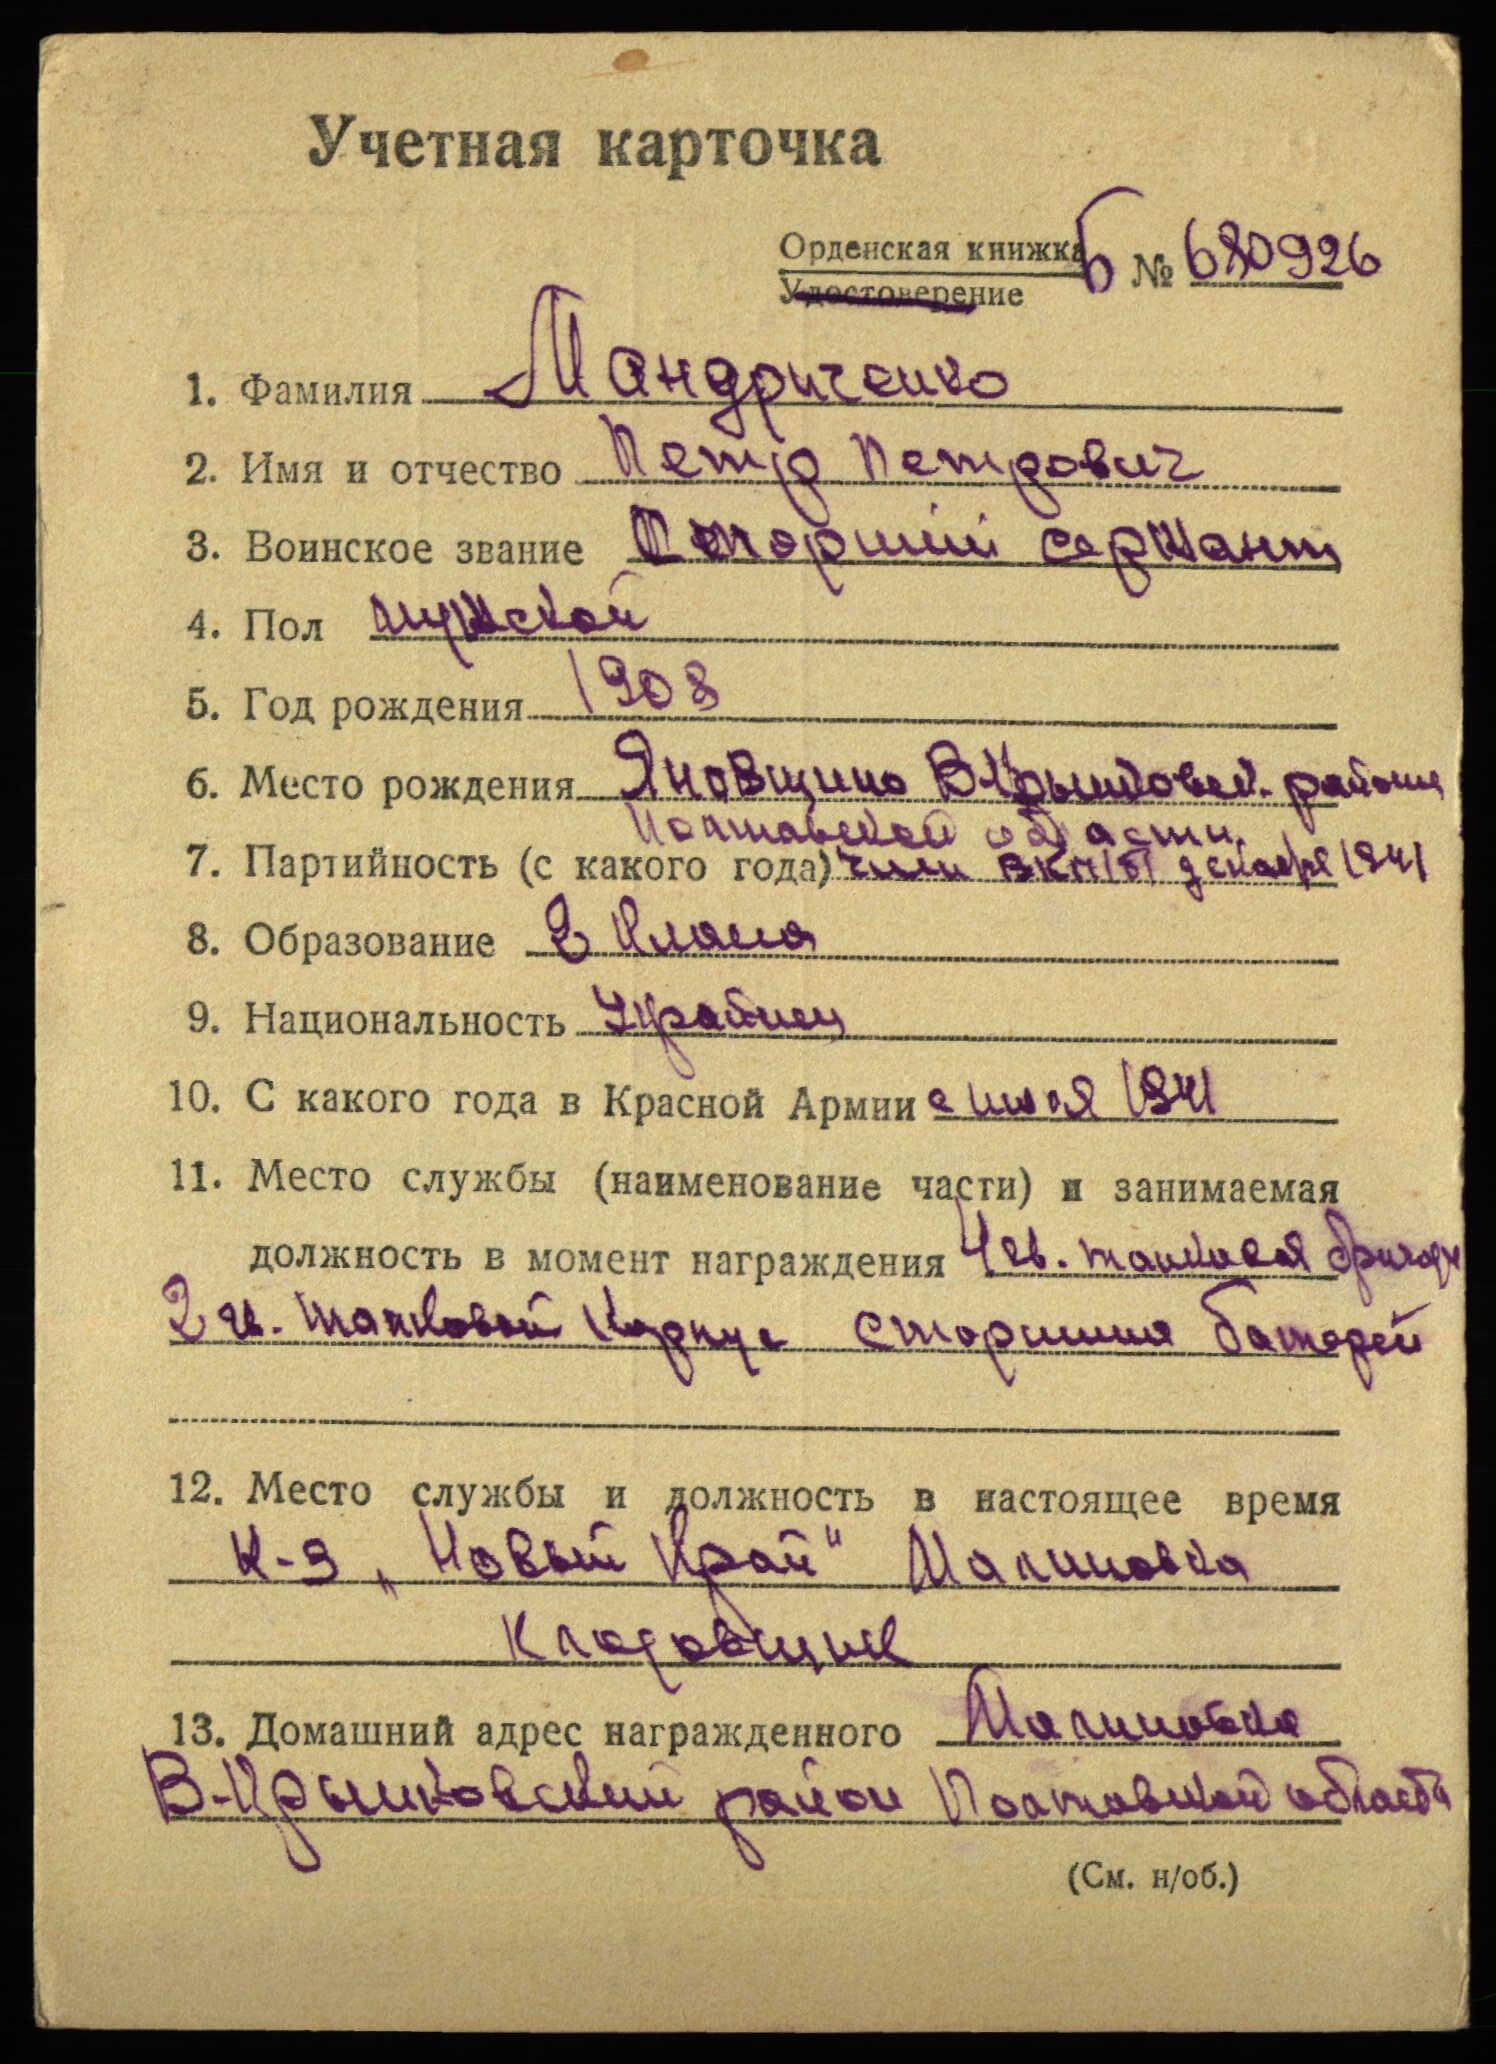 Учетная карточка
Орденская книжка Б № 680926
Удостоверение
1. Фамилия Мандриченко
2. Имя и отчество Петр Петрович
3. Воинское звание Старший сержант
4. Пол мужской
5. Год рождения 1908
6. Место рождения Яновщина В-Крынковск. района
Полтавской области
7. Партийность (с какого года) член ВКП(б) декабря 1941
8. Образование 2 класса
9. Национальность Украинец
10. С какого года в Красной Армии с июля 1941
11. Место службы (наименование части) и занимаемая
должность в момент награждения 4 гв. танковая бригада
2 гв. танковой корпус старшина батареи
12. Место службы и должность в настоящее время
к-з „Новый Край" Малиновка
Кладовщик
13. Домашний адрес награжденного Малиновка
В-Крынковский район Полтавской области
(См. н/об.)